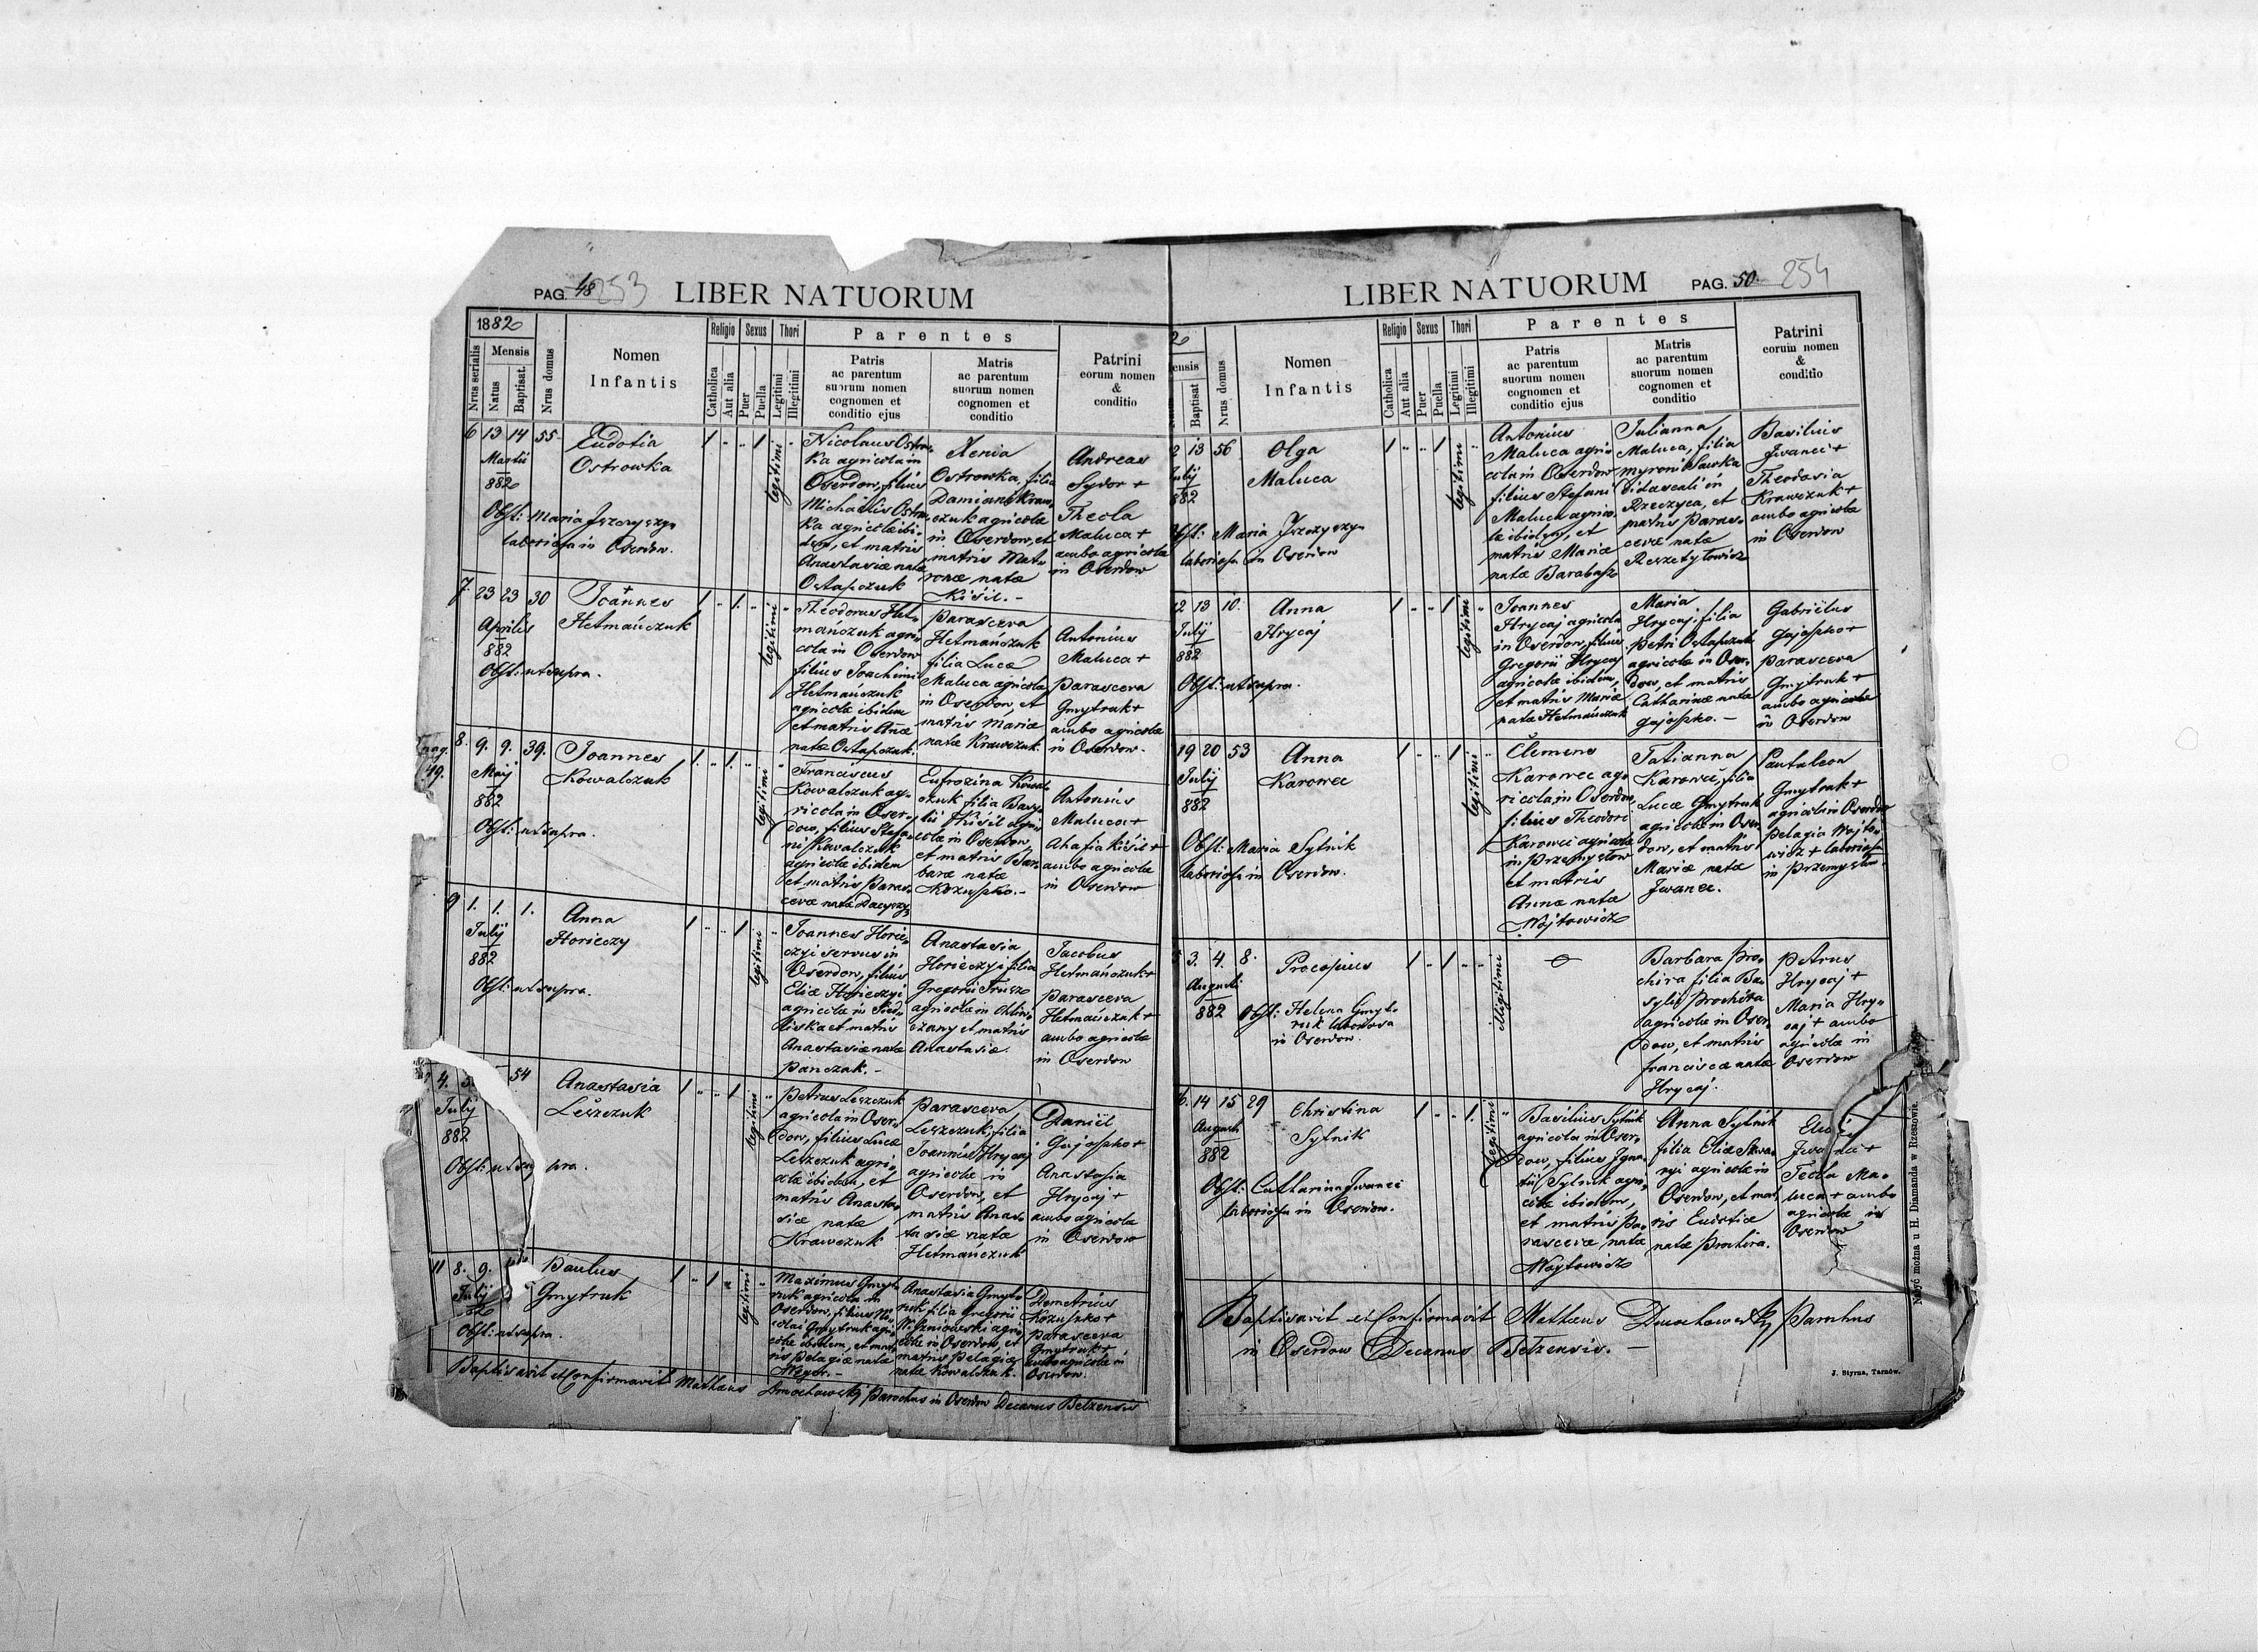 PAG. 48 253 LIBER NATUORUM
1882
Nrus serialis
Mensis
Natus
Baptisat.
Nrus domus
Nomen
Infantis
Religio
Catholica
Aut alia
Sexus
Puer
Puella
Thori
Legitimi
Illegitimi
Parentes
Patris
ac parentum
suorum nomen
cognomen et
conditio ejus
Matris
ac parentum
suorum nomen
cognomen et
conditio
Patrini
eorum nomen
&
conditio
6 13 14 55
Martii
882
Eudotia
Ostrowka
Obst: Maria
laboriosa in Oserdow.
1 " " 1 legitimi "
Nicolaus Ostro-
ka agricola in
Oserdow, filius
Michaelis Ostro-
ka agricolæ ibi-
dem, et matris
Anastasiæ natæ
Ostapczuk
Xenia
Ostrowka, filia
Damiani Kraw-
czuk agricolæ
in Oserdow, et
matris Mat-
ronæ natæ
Kisil. -
Andreas
Sydor +
Thecla
Maluca +
ambo agricolæ
in Oserdow
7 23 23 30
Aprilis
882
Joannes
Hetmańczuk
Obst: ut supra.
1 " 1 " legitimi "
Theodorus Het-
mańczuk agri-
cola in Oserdow
filius Joachimi
Hetmańczuk
agricolæ ibidem
et matris Annæ
natæ Ostapczuk.
Parasceva
Hetmańczuk
filia Lucæ
Maluca agricolæ
in Oserdow, et
matris Mariæ
natæ Krawczuk.
Antonius
Maluca +
Parasceva
Gmytruk +
ambo agricolæ
in Oserdow.
pag.
49.
8. 9. 9. 39.
Maij
882
Joannes
Kowalczuk
Obst: ut supra.
1. " 1. " legitimi "
Franciscus
Kowalczuk ag-
ricola in Oser-
dow, filius Stefa-
ni Kowalczuk
agricolæ ibidem
et matris Paras-
cevæ natæ
Eufrozina Kowal-
czuk filia Basy-
lii Kisil agri-
colæ in Oserdow,
et matris Bar-
baræ natæ
Kozuszko. -
Antonius
Maluca +
Ahafia Kisil +
ambo agricolæ
in Oserdow
9 1. 1. 1.
Julij
882
Anna
Horieczy
Obst: ut supra.
1 " " 1 legitimi "
Joannes Horie-
czyi servus in
Oserdow, filius
Eliæ Horieczyi
agricolæ in Sied-
liska et matris
Anastasiæ natæ
Panczak. -
Anastasia
Horieczyi filia
Gregorii
agricolæ in
et matris
Anastasiæ.
Jacobus
Hetmańczuk +
Parasceva
Hetmańczuk +
ambo agricolæ
in Oserdow
4. 5. 54
Julij
882
Anastasia
Leszczuk
Obst: ut supra.
1 " " 1 legitimi "
Petrus Leszczuk
agricola in Oser-
dow, filius Lucæ
Leszczuk agri-
colæ ibidem, et
matris Anasta-
siæ natæ
Krawczuk
Parasceva
Leszczuk, filia
Joannis Hrycaj
agricolæ in
Oserdow, et
matris Anas-
tasiæ natæ
Hetmańczuk
Daniel
Gajoszko +
Anastasia
Hrycaj +
ambo agricolæ
in Oserdow
11 8. 9.
Julij
Paulus
Gmytruk
Obst: ut supra.
1 " 1 " legitimi "
Maximus Gmyt-
ruk agricola in
Oserdow, filius Ni-
colai Gmytruk agri-
colæ ibidem, et mat-
ris Pelagiæ natæ
Anastasia Gmyt-
ruk filia Gregorii
Wiszniowski agri-
colæ in Oserdow, et
matris Pelagiæ
natæ Kowalczuk.
Demetrius
Kozuszko +
Parasceva
Gmytruk +
ambo agricolæ in
Oserdow.
Baptisavit et Confirmavit Mathæus Dmochowskij Parochus in Oserdow Decanus Belzensis
LIBER NATUORUM PAG. 50. 254
Baptisat
Nrus domus
Nomen
Infantis
Religio
Catholica
Aut alia
Sexus
Puer
Puella
Thori
Legitimi
Illegitimi
Parentes
Patris
ac parentum
suorum nomen
cognomen et
conditio ejus
Matris
ac parentum
suorum nomen
cognomen et
conditio
Patrini
eorum nomen
&
conditio
2 13 56
Julij
882
Olga
Maluca
Obst: Maria
laboriosa in Oserdow
1 " " 1 legitimi "
Antonius
Maluca agri-
cola in Oserdow
filius Stefani
Maluca agrico-
læ ibidem, et
matris Mariæ
natæ Barabasz
Julianna
Maluca, filia
Myroni Sawka
didascali in
Rzeczyca, et
matris Paras-
cevæ natæ
Reszetylowicz
Basilius
Jwanci +
Theodosia
Krawczuk +
ambo agricolæ
in Oserdow
12 13 10.
Julij
882
Anna
Hrycaj
Obst: ut supra.
1 " " 1 legitimi "
Joannes
Hrycaj agricola
in Oserdow, filius
Gregorii Hrycaj
agricolæ ibidem,
et matris Mariæ
natæ Hetmańczuk
Maria
Hrycaj, filia
Petri Ostapczuk
agricolæ in Oser-
dow, et matris
Catharinæ natæ
Gajoszko. -
Gabrielus
Gajoszko +
Parasceva
Gmytruk +
ambo agricolæ
in Oserdow
19 20 53
Julij
882
Anna
Karowec
Obst: Maria Sytnik
laboriosa in Oserdow.
1 " " 1 legitimi "
Clemens
Karowec ag-
ricola in Oserdow,
filius Theodori
Karowec agricolæ
in Przemysłow
et matris
Annæ natæ
Wojtowicz
Tatianna
Karowec, filia
Lucæ Gmytruk
agricolæ in Oser-
dow, et matris
Mariæ natæ
Jwanec.
Pantaleon
Gmytruk +
agricola in Oserdow
Pelagia Wojto-
wicz + laboriosa
in Przemysłow.
3. 4. 8.
Augusti
882
Procopius
Obst: Helena Gmyt-
ruk laboriosa
in Oserdow.
1 " 1 " " illegitimi
Barbara Pro-
chira filia Ba-
sylij Prochira
agricolæ in Oser-
dow, et matris
Franciscæ natæ
Hrycaj.
Petrus
Hrycaj +
Maria Hry-
caj + ambo
agricolæ in
Oserdow
6. 14 15 29
Augusti
882
Christina
Sytnik
Obst: Catharina Jwanci
laboriosa in Oserdow.
1 " " 1. legitimi "
Basilius Sytnik
agricola in Oser-
dow, filius Igna-
tii Sytnik agri-
colæ ibidem,
et matris Pa-
rascevæ natæ
Wojtowicz
Anna Sytnik
filia Eliæ
agricolæ in
Oserdow, et mat-
ris Eudotiæ
natæ Prochira.
Tecla Ma-
luca + ambo
agricolæ in
Oserdow
Baptisavit et Confirmavit Mathæus Dmochowskij Parochus
in Oserdow Decanus Belzensis. -
Nabyć można u H. Diamanda w Rzeszowie.
J. Styrna, Tarnów.